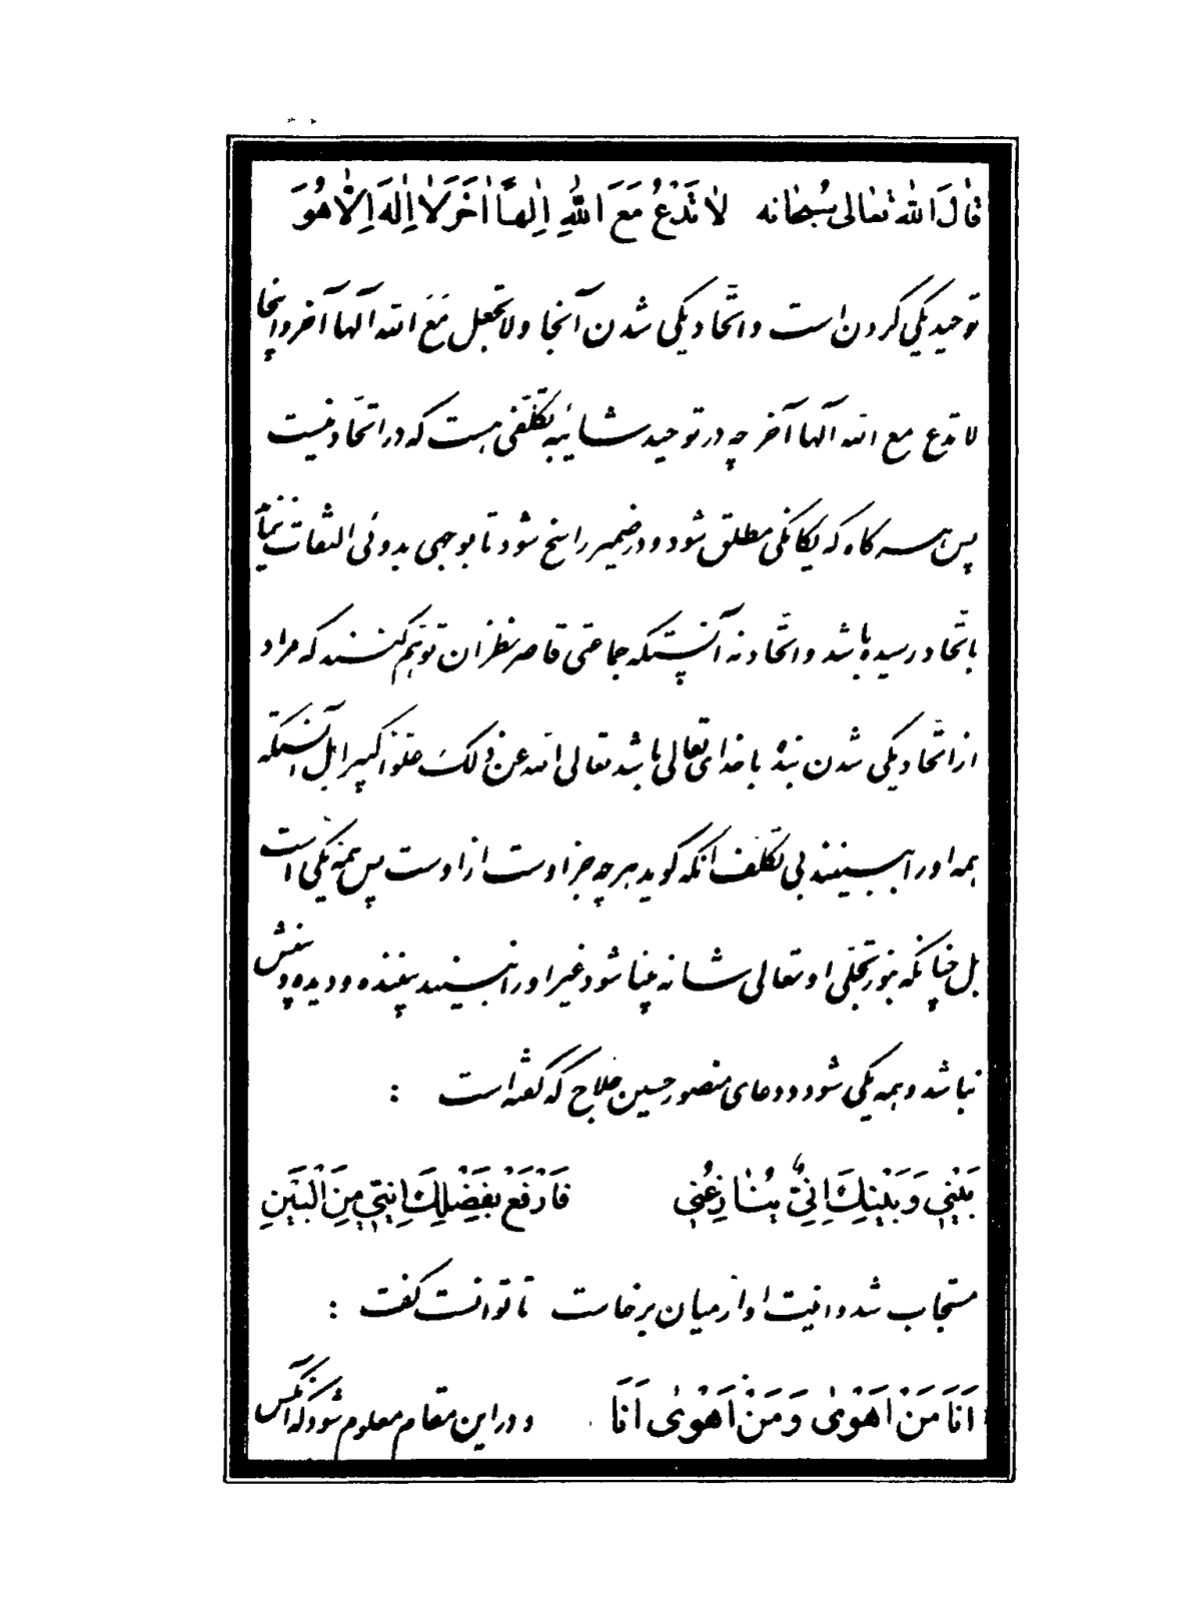 قَالَ اللهُ تَعٰالى سُبحٰانه لاٰ تَدْعُ مَعَ اللهِ اِلٰهاً اٰخَرَ لاٰ اِلٰهَ اِلاّٰ هُوَ
توحید یکی کردن است و اتّحاد یکی شدن آنجا و لا تجعل مَعَ الله آلها آخر و اینجا
لا تدع مع الله آلها آخر چه در توحید شائبه تکلّفی هست که در اتّحاد نیست
پس هر گاه که یکانگی مطلق شود و در ضمیر راسخ شود تا بوجهی بدوئی التفات ننماید
باتّحاد رسیده باشد و اتّحاد نه آنستکه جماعتی قاصر نظران توهّم کنند که مراد
از اتّحاد یکی شدن بنده با خدای تعالی باشد تعالی الله عن ذلک علوّا کبیرا بل آنستکه
همه او را ببینند بی تکلّف آنکه گوید هر چه جز اوست از اوست پس همه یکی است
بل چنانکه بنور تجلّی او تعالی شانه بینا شود غیر او را نبینند بیننده و دیده و بینش
نباشد و همه یکی شود و دعای منصور حسین حلاج که گفته است :
بَیْنی وَ بَیْنِكَ اِنِیٌّ یُنٰازِعُنی فَارْفَعْ بِفَضْلِكَ اِنِیّی مِنَ الْبَیْنِ
مستجاب شد و انیت او از میان برخاست تا توانست گفت :
اَنَا مَنْ اَهْوٰى وَ مَنْ اَهْوٰى اَنَا و در این مقام معلوم شود که آنکس